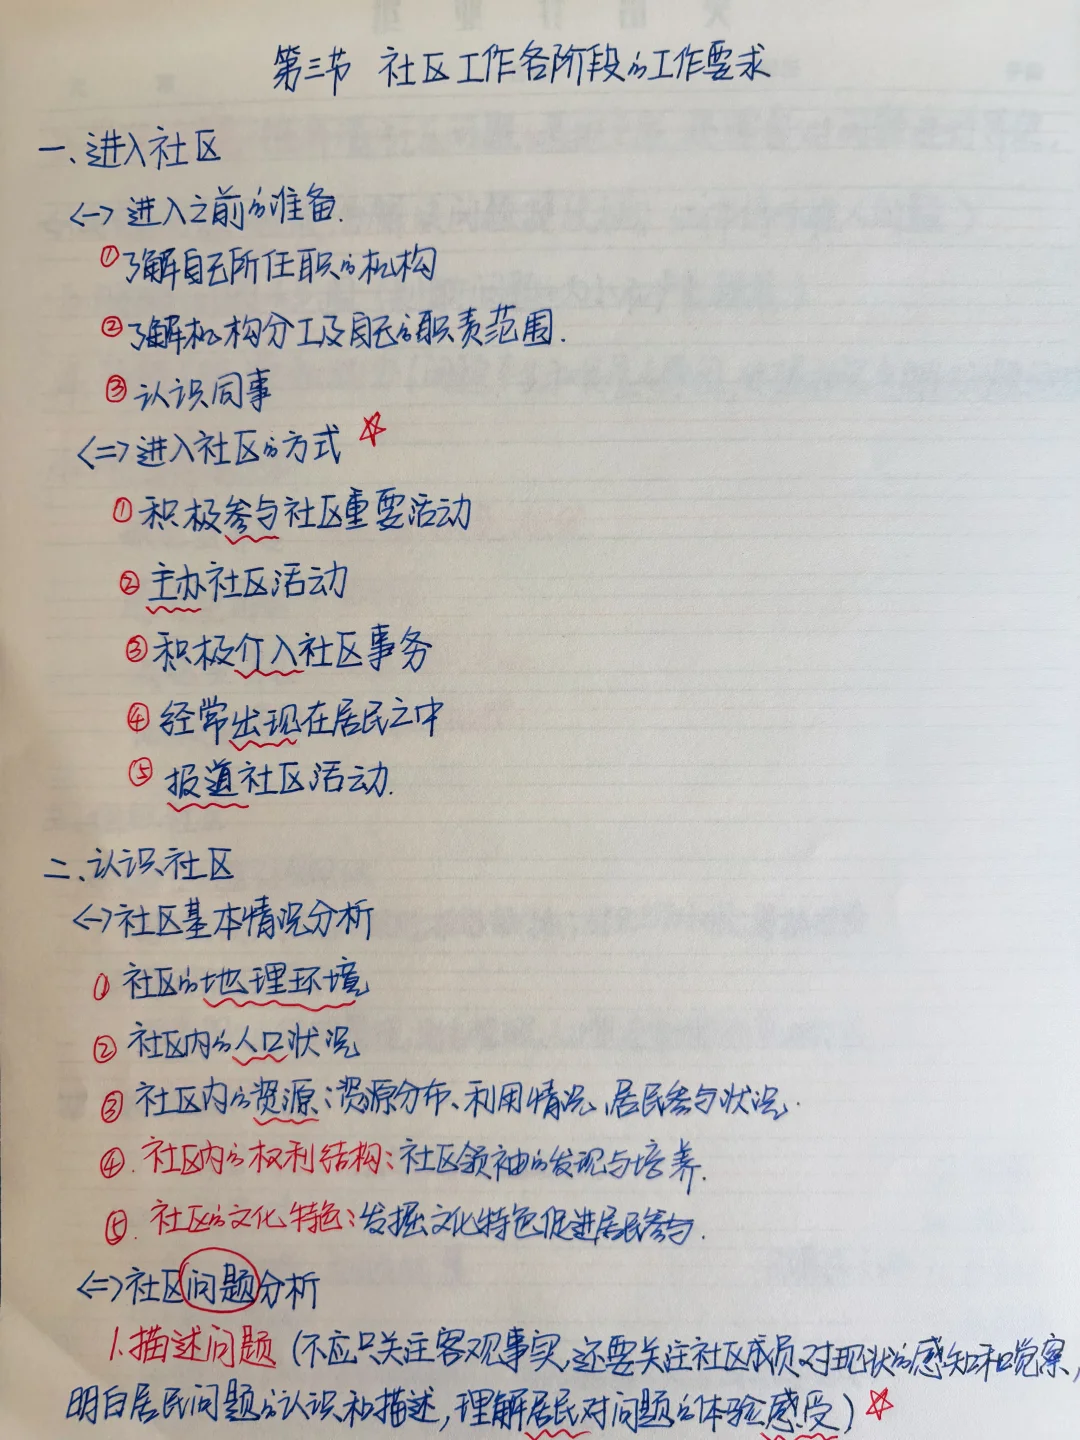 第三节 社区工作各阶段的工作要求
一、进入社区
<一> 进入之前的准备.
①了解自己所任职的机构
②了解机构分工及自己的职责范围.
③认识同事
<二>进入社区的方式 ☆
①积极参与社区重要活动
②主办社区活动
③积极介入社区事务
④经常出现在居民之中
⑤报道社区活动.
二、认识社区
<一>社区基本情况分析
① 社区的地理环境
② 社区内的人口状况
③ 社区内的资源:资源分布、利用情况、居民参与状况.
④. 社区内的权利结构:社区领袖的发现与培养.
⑤. 社区的文化特色:发掘文化特色促进居民参与.
<二>社区问题分析
1.描述问题(不应只关注客观事实,还要关注社区成员对现状的感知和觉察,
明白居民问题的认识和描述,理解居民对问题的体验感受)☆